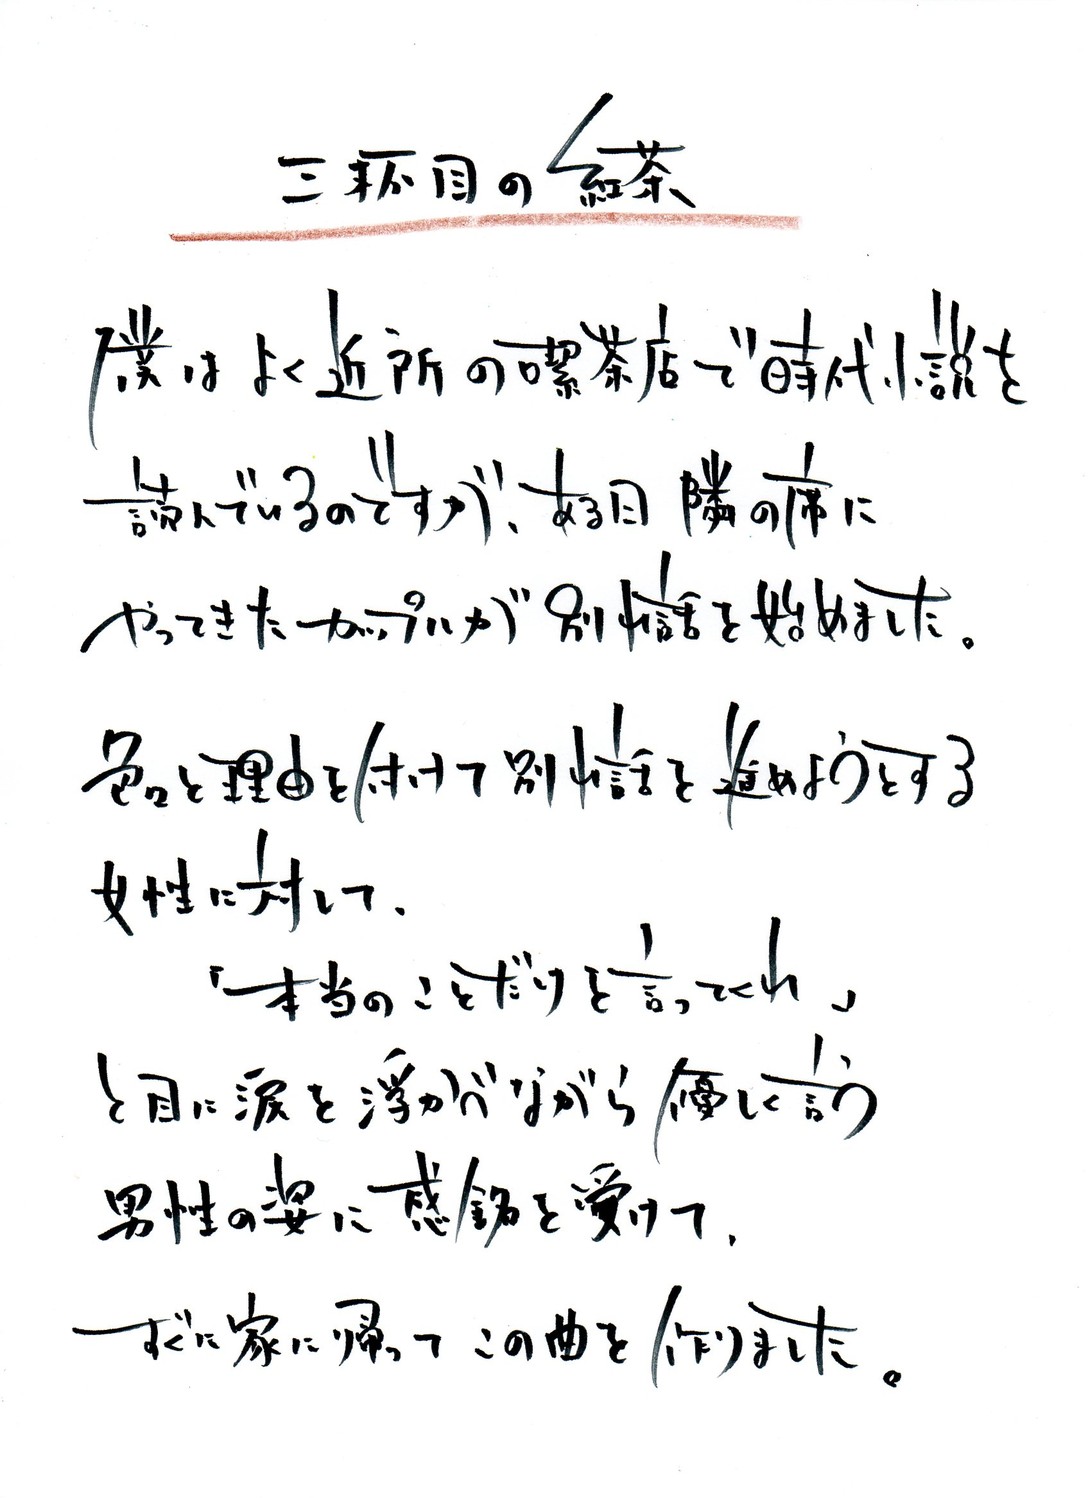 三杯目の紅茶
僕はよく近所の喫茶店で時代小説を
読んでいるのですが、ある日 隣の席に
やってきたカップルが 別れ話を始めました。
色々と理由を付けて別れ話を進めようとする
女性に対して、
「本当のことだけを言ってくれ」
と目に涙を浮かべながら優しく言う
男性の姿に感銘を受けて、
すぐに家に帰って この曲を作りました。